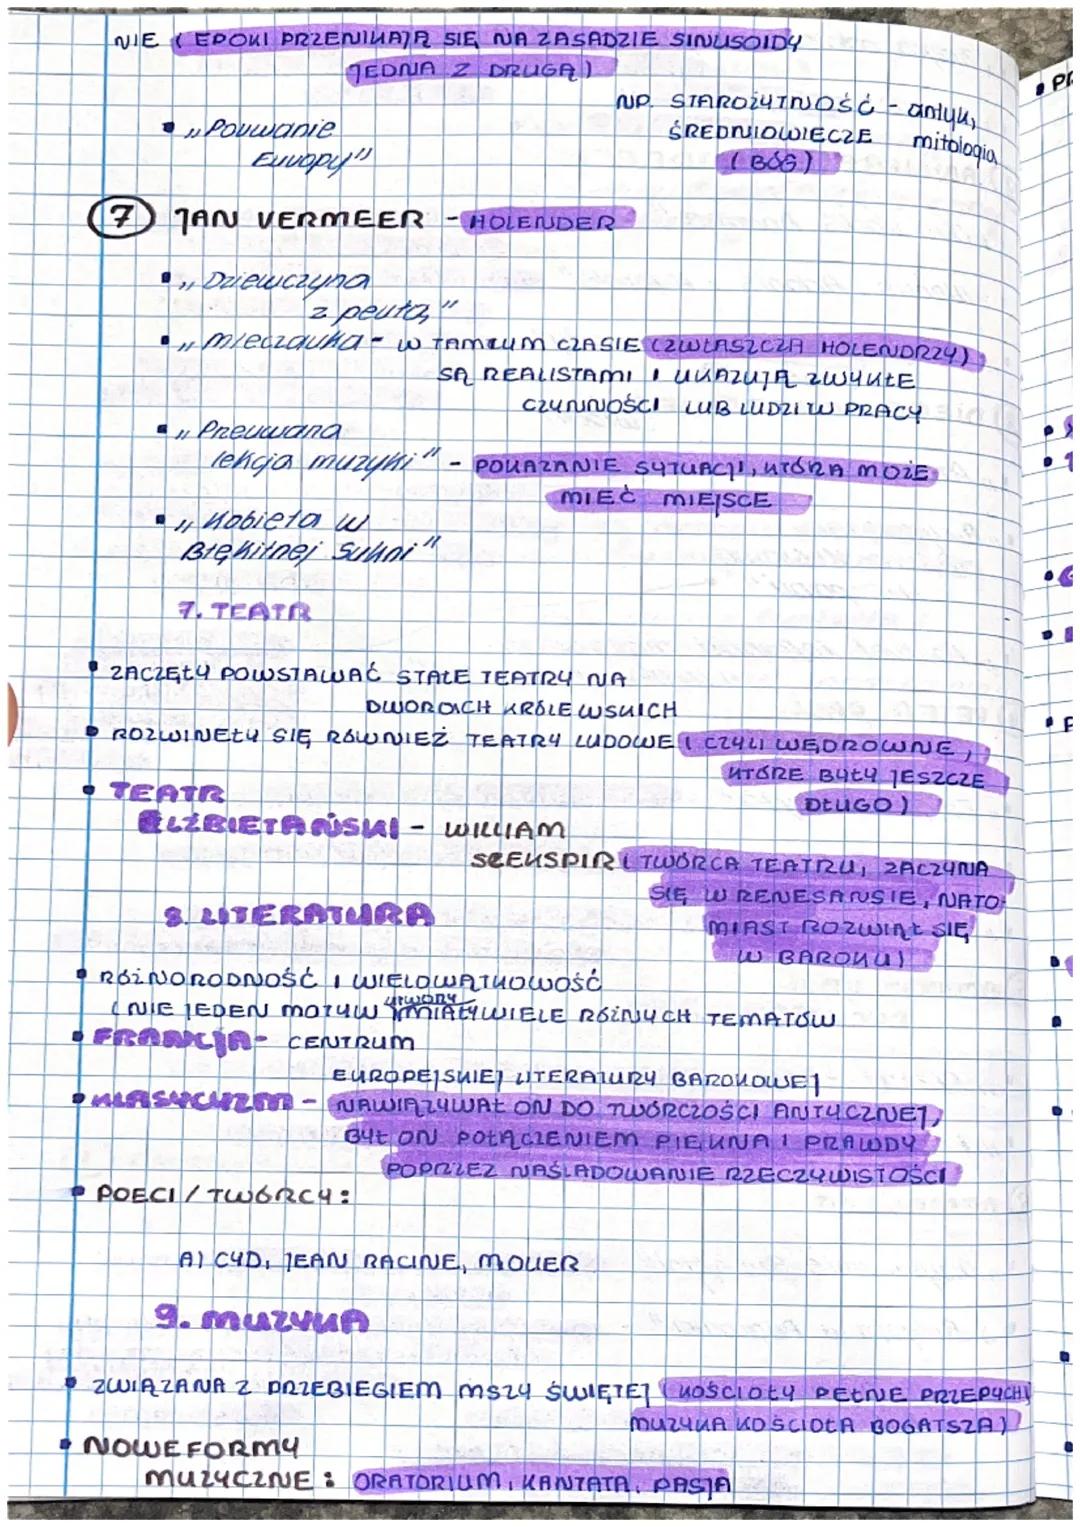 NIE (EPOKI PRZENIKAJĄ SIĘ NA ZASADZIE SINUSOIDY
JEDNA Z DRUGĄ)
NP. STAROŻYTNOŚĆ - antyk,
ŚREDNIOWIECZE mitologia
(BÓG)
• „Porwanie
Europy"
7 JAN VERMEER - HOLENDER
• „Dziewczyna
z perłą"
• „Mleczarka - W TAMTYM CZASIE (ZWŁASZCZA HOLENDRZY)
SĄ REALISTAMI I UKAZUJĄ ZWYKŁE
CZYNNOŚCI LUB LUDZI W PRACY
• „Przerwana
lekcja muzyki" - POKAZANIE SYTUACJI, KTÓRA MOŻE
MIEĆ MIEJSCE
• „Kobieta w
Błękitnej Sukni"
7. TEATR
• ZACZĘŁY POWSTAWAĆ STAŁE TEATRY NA
DWORACH KRÓLEWSKICH
• ROZWINĘŁY SIĘ RÓWNIEŻ TEATRY LUDOWE (CZYLI WĘDROWNE,
KTÓRE BYŁY JESZCZE
DŁUGO)
• TEATR
ELŻBIETAŃSKI - WILLIAM
SZEKSPIR (TWÓRCA TEATRU, ZACZYNA
SIĘ W RENESANSIE, NATO-
MIAST ROZWIJAŁ SIĘ
W BAROKU)
8. LITERATURA
• RÓŻNORODNOŚĆ I WIELOWĄTKOWOŚĆ
(NIE JEDEN MOTYW utwory MIAŁY WIELE RÓŻNYCH TEMATÓW
• FRANCJA - CENTRUM
EUROPEJSKIEJ LITERATURY BAROKOWEJ
• KLASYCYZM - NAWIĄZYWAŁ ON DO TWÓRCZOŚCI ANTYCZNEJ,
BYŁ ON POŁĄCZENIEM PIĘKNA I PRAWDY
POPRZEZ NAŚLADOWANIE RZECZYWISTOŚCI
• POECI / TWÓRCY:
A) CYD, JEAN RACINE, MOLIER
9. MUZYKA
• ZWIĄZANA Z PRZEBIEGIEM MSZY ŚWIĘTEJ (KOŚCIOŁY PEŁNE PRZEPYCHU
MUZYKA KOŚCIOŁA BOGATSZA)
• NOWE FORMY
MUZYCZNE: ORATORIUM, KANTATA, PASJA